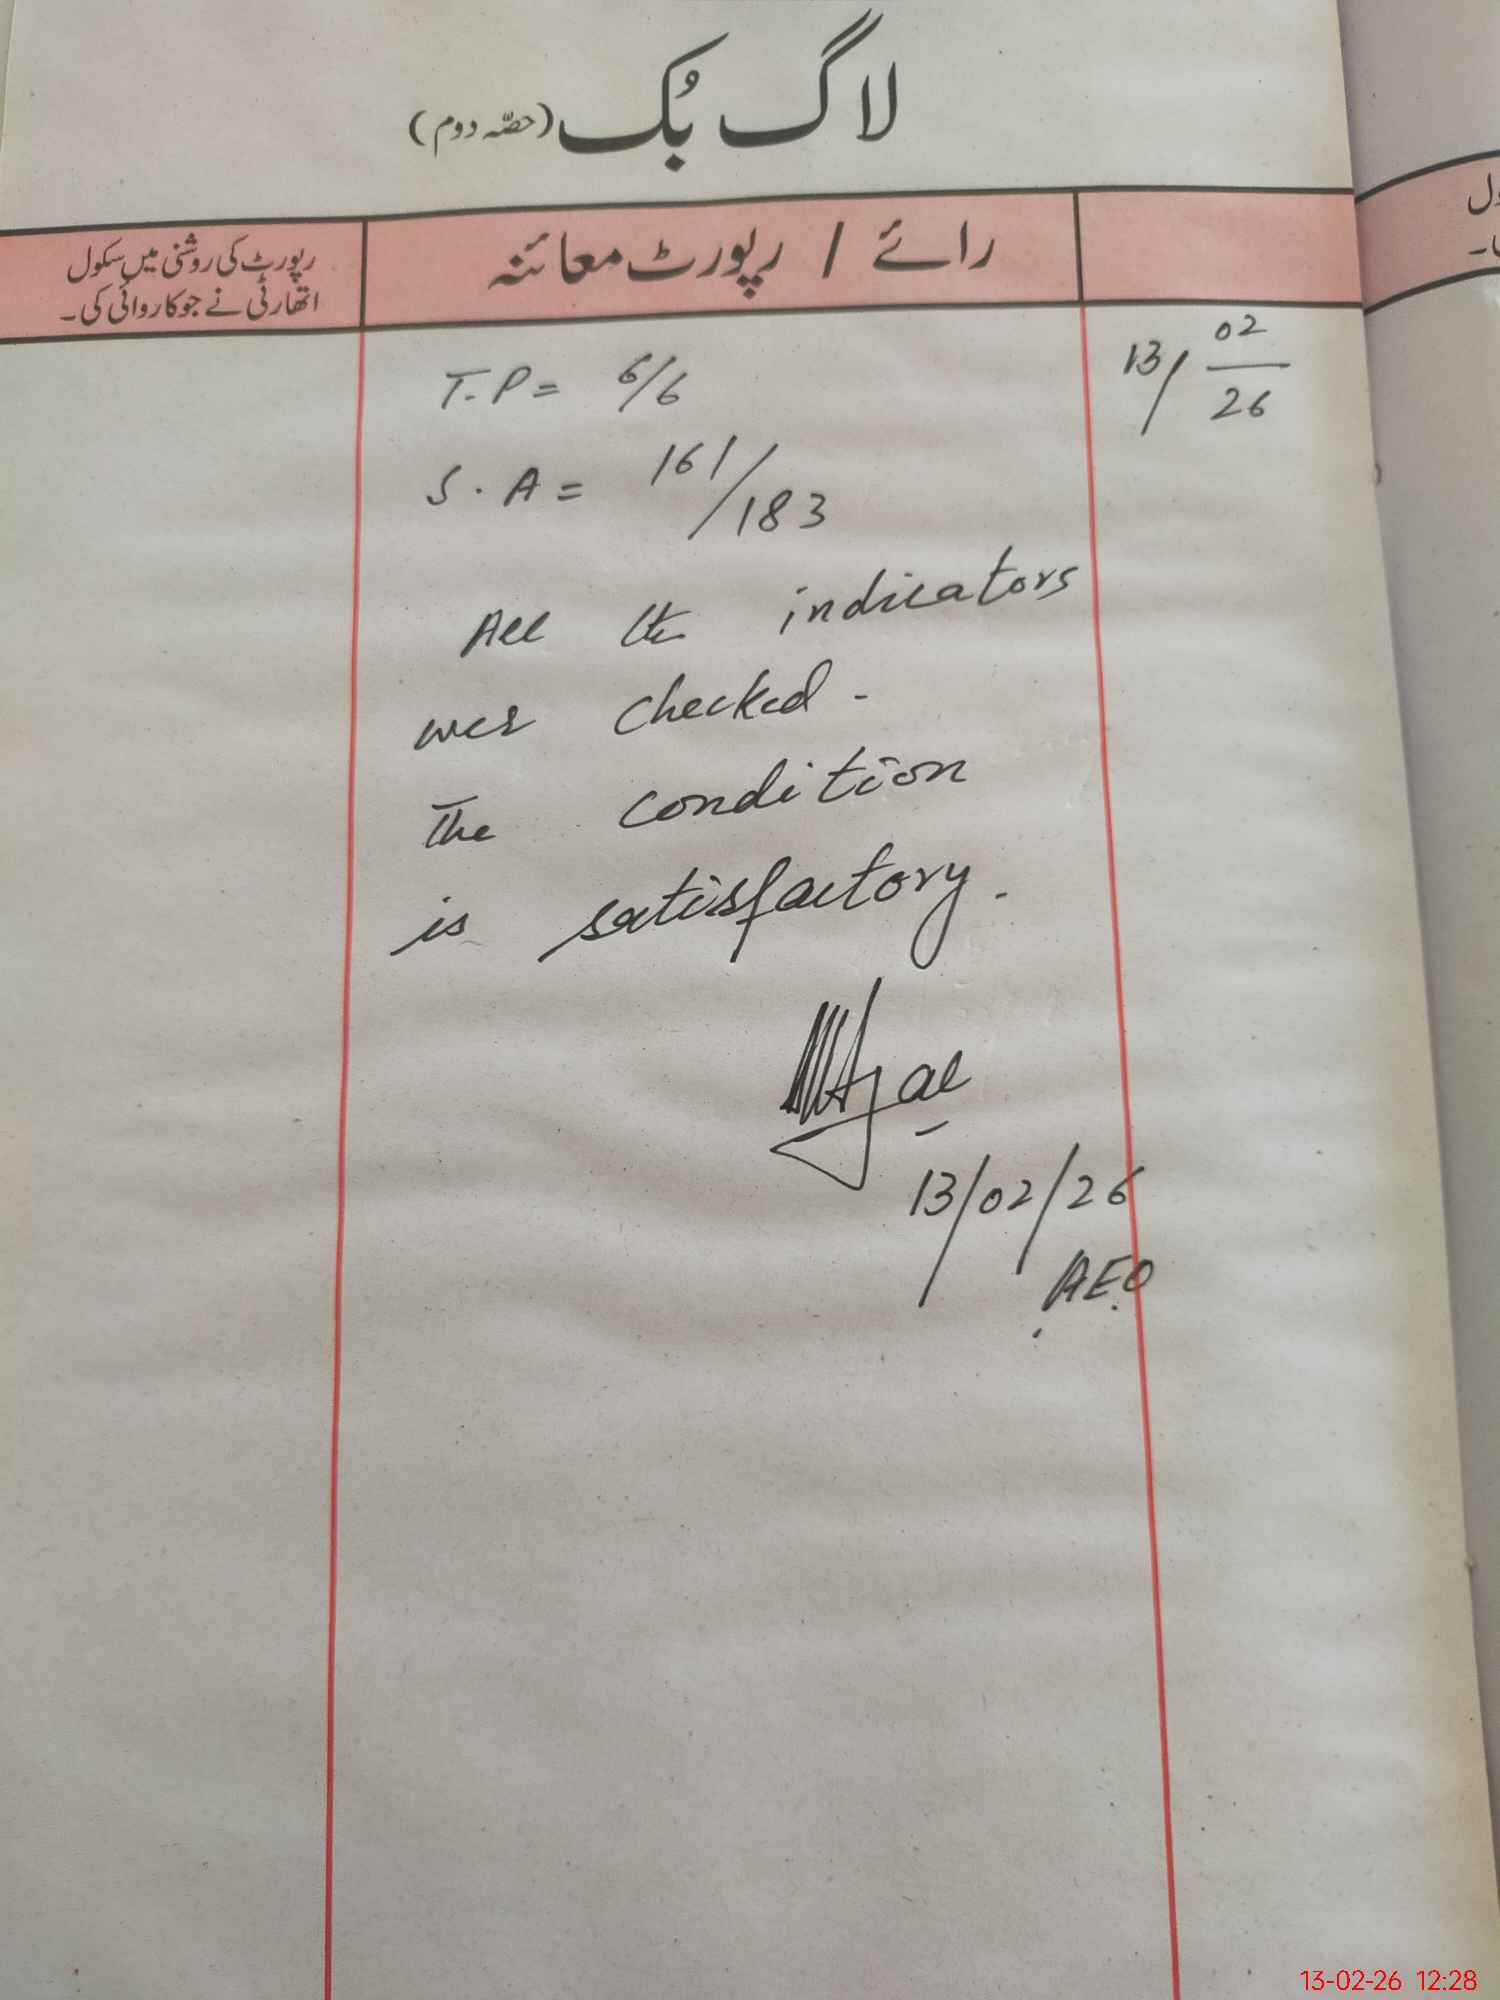 لاگ بُک (حصّہ دوم)
رائے / رپورٹ معائنہ
رپورٹ کی روشنی میں سکول
اتھارٹی نے جو کاروائی کی۔
13/02/26
T.P = 6/6
S.A = 161/183
All the indicators
were checked.
The condition
is satisfactory.
13/02/26
AEO
13-02-26 12:28